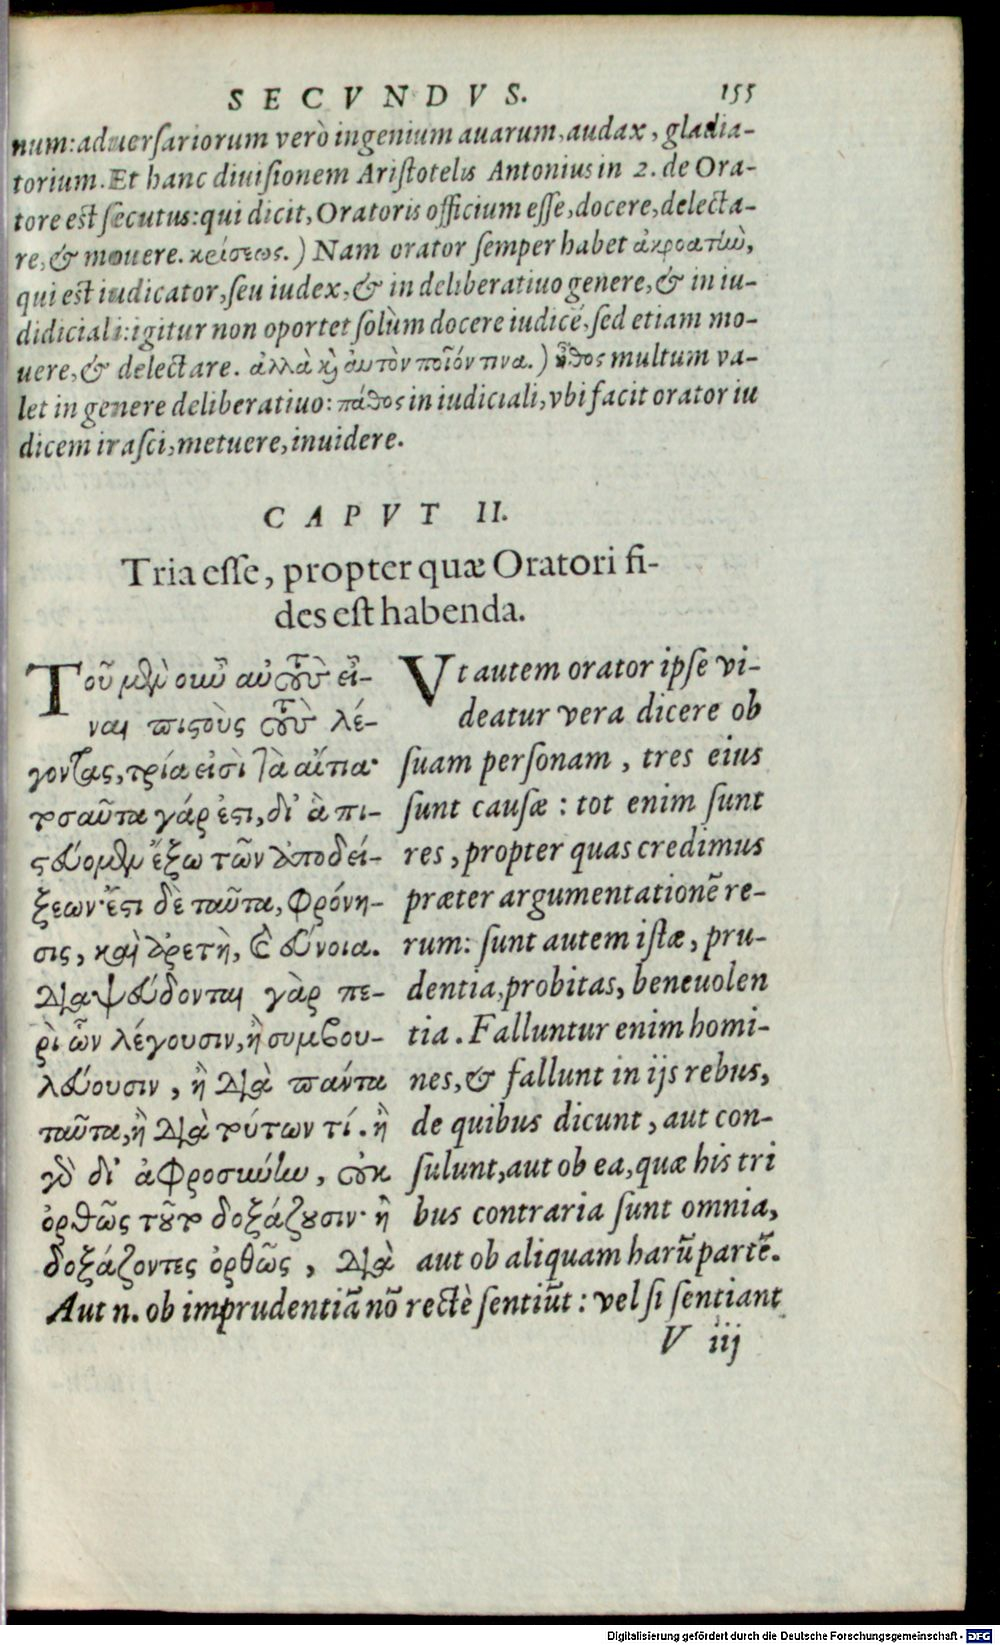 SECVNDVS. 155
num: aduersariorum verò ingenium auarum, audax, gladia-
torium. Et hanc diuisionem Aristotelis Antonius in 2. de Ora-
tore est secutus: qui dicit, Oratoris officium esse, docere, delecta-
re, & mouere. κρίσεως.) Nam orator semper habet ἀκροατὴν,
qui est iudicator, seu iudex, & in deliberatiuo genere, & in iu-
didiciali: igitur non oportet solùm docere iudicē, sed etiam mo-
uere, & delectare. ἀλλὰ καὶ αὐτὸν ποῖόν τινα.) ἦθος multum va-
let in genere deliberatiuo: πάθος in iudiciali, vbi facit orator iu
dicem irasci, metuere, inuidere.
CAPVT II.
Tria esse, propter quæ Oratori fi-
des est habenda.
Τοῦ μὲν οὖν αὐτοὺς εἶ-
ναι πιστοὺς τοὺς λέ-
γοντας, τρία εἰσὶ τὰ αἴτια·
τοσαῦτα γάρ ἐστι, δι' ἃ πι-
στεύομεν ἔξω τῶν ἀποδεί-
ξεων· ἔστι δὲ ταῦτα, φρόνη-
σις, καὶ ἀρετὴ, καὶ εὔνοια.
Διαψεύδονται γὰρ πε-
ρὶ ὧν λέγουσιν, ἢ συμβου-
λεύουσιν, ἢ διὰ πάντα
ταῦτα, ἢ διὰ τούτων τί. ἢ
γὰρ δι' ἀφροσύνην, οὐκ
ὀρθῶς τοῦτο δοξάζουσιν· ἢ
δοξάζοντες ὀρθῶς, διὰ
Vt autem orator ipse vi-
deatur vera dicere ob
suam personam, tres eius
sunt causæ: tot enim sunt
res, propter quas credimus
præter argumentationē re-
rum: sunt autem istæ, pru-
dentia, probitas, beneuolen
tia. Falluntur enim homi-
nes, & fallunt in ijs rebus,
de quibus dicunt, aut con-
sulunt, aut ob ea, quæ his tri
bus contraria sunt omnia,
aut ob aliquam harū partē.
Aut n. ob imprudentiā nō rectè sentiūt: vel si sentiant
V iij
Digitalisierung gefördert durch die Deutsche Forschungsgemeinschaft - DFG